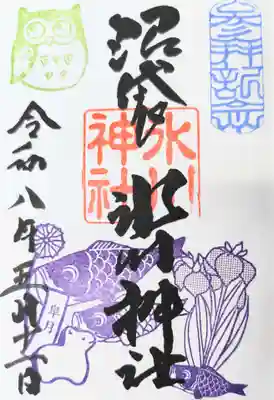 参拝記念
沼袋
氷川神社
氷川
神社
令和八年五月十一日
皐月